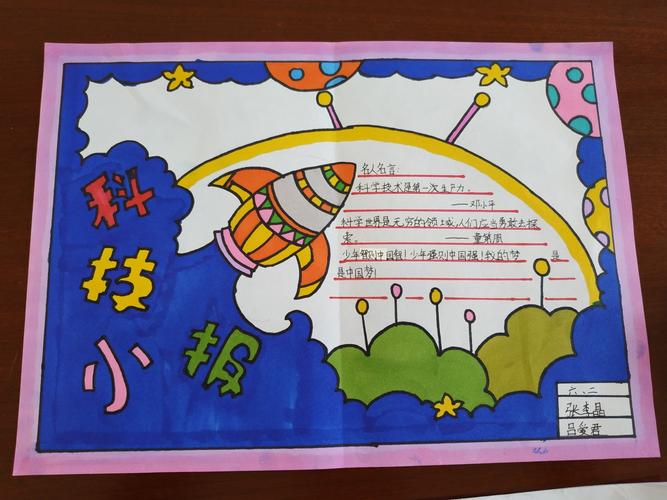 科技小报
名人名言:
科学技术是第一次生产力。
——邓小平
科学世界是无穷的领域,人们应当勇敢去探
索。 ——童第周
少年强则中国强!少年强则中国强!我的梦 是
是中国梦!
六、二
张李晶
吕爱君